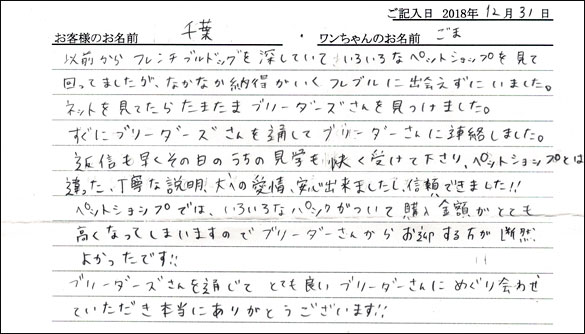 ご記入日 2018年 12月 31日
お客様のお名前 千葉 ・ ワンちゃんのお名前 ごま
以前からフレンチブルドッグを探していて いろいろなペットショップを見て
回ってましたが、なかなか納得がいくフレブルに出会えずにいました。
ネットを見てたらたまたまブリーダーズさんを見つけました。
すぐにブリーダーズさんを通してブリーダーさんに連絡しました。
返信も早くその日のうちの見学も快く受けて下さり、ペットショップとは
違った、丁寧な説明、犬への愛情、安心出来ましたし、信頼できました!!
ペットショップでは、いろいろなパックがついて購入金額がとても
高くなってしまいますのでブリーダーさんからお迎する方が断然
よかったです!!
ブリーダーズさんを通じて とても良いブリーダーさんにめぐり合わせ
ていただき本当にありがとうございます!!